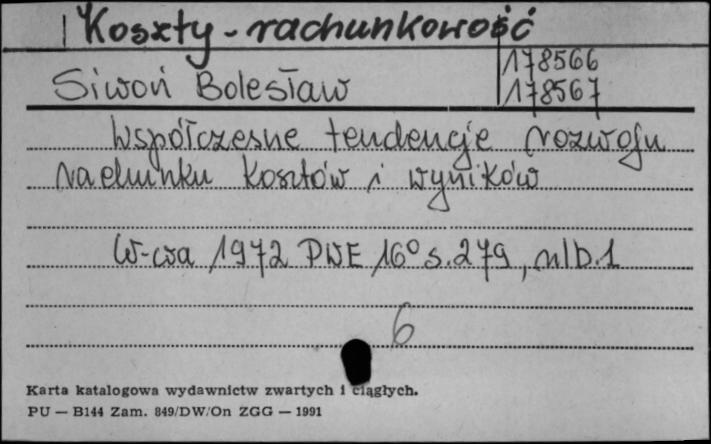 Koszty - rachunkowość
178566
Siwoń Bolesław
178567
Współczesne tendencje rozwoju
rachunku kosztów i wyników
W-wa 1972 PWE 16° s. 279, nlb. 1
6
Karta katalogowa wydawnictw zwartych i ciągłych.
PU — B144 Zam. 849/DW/On ZGG — 1991